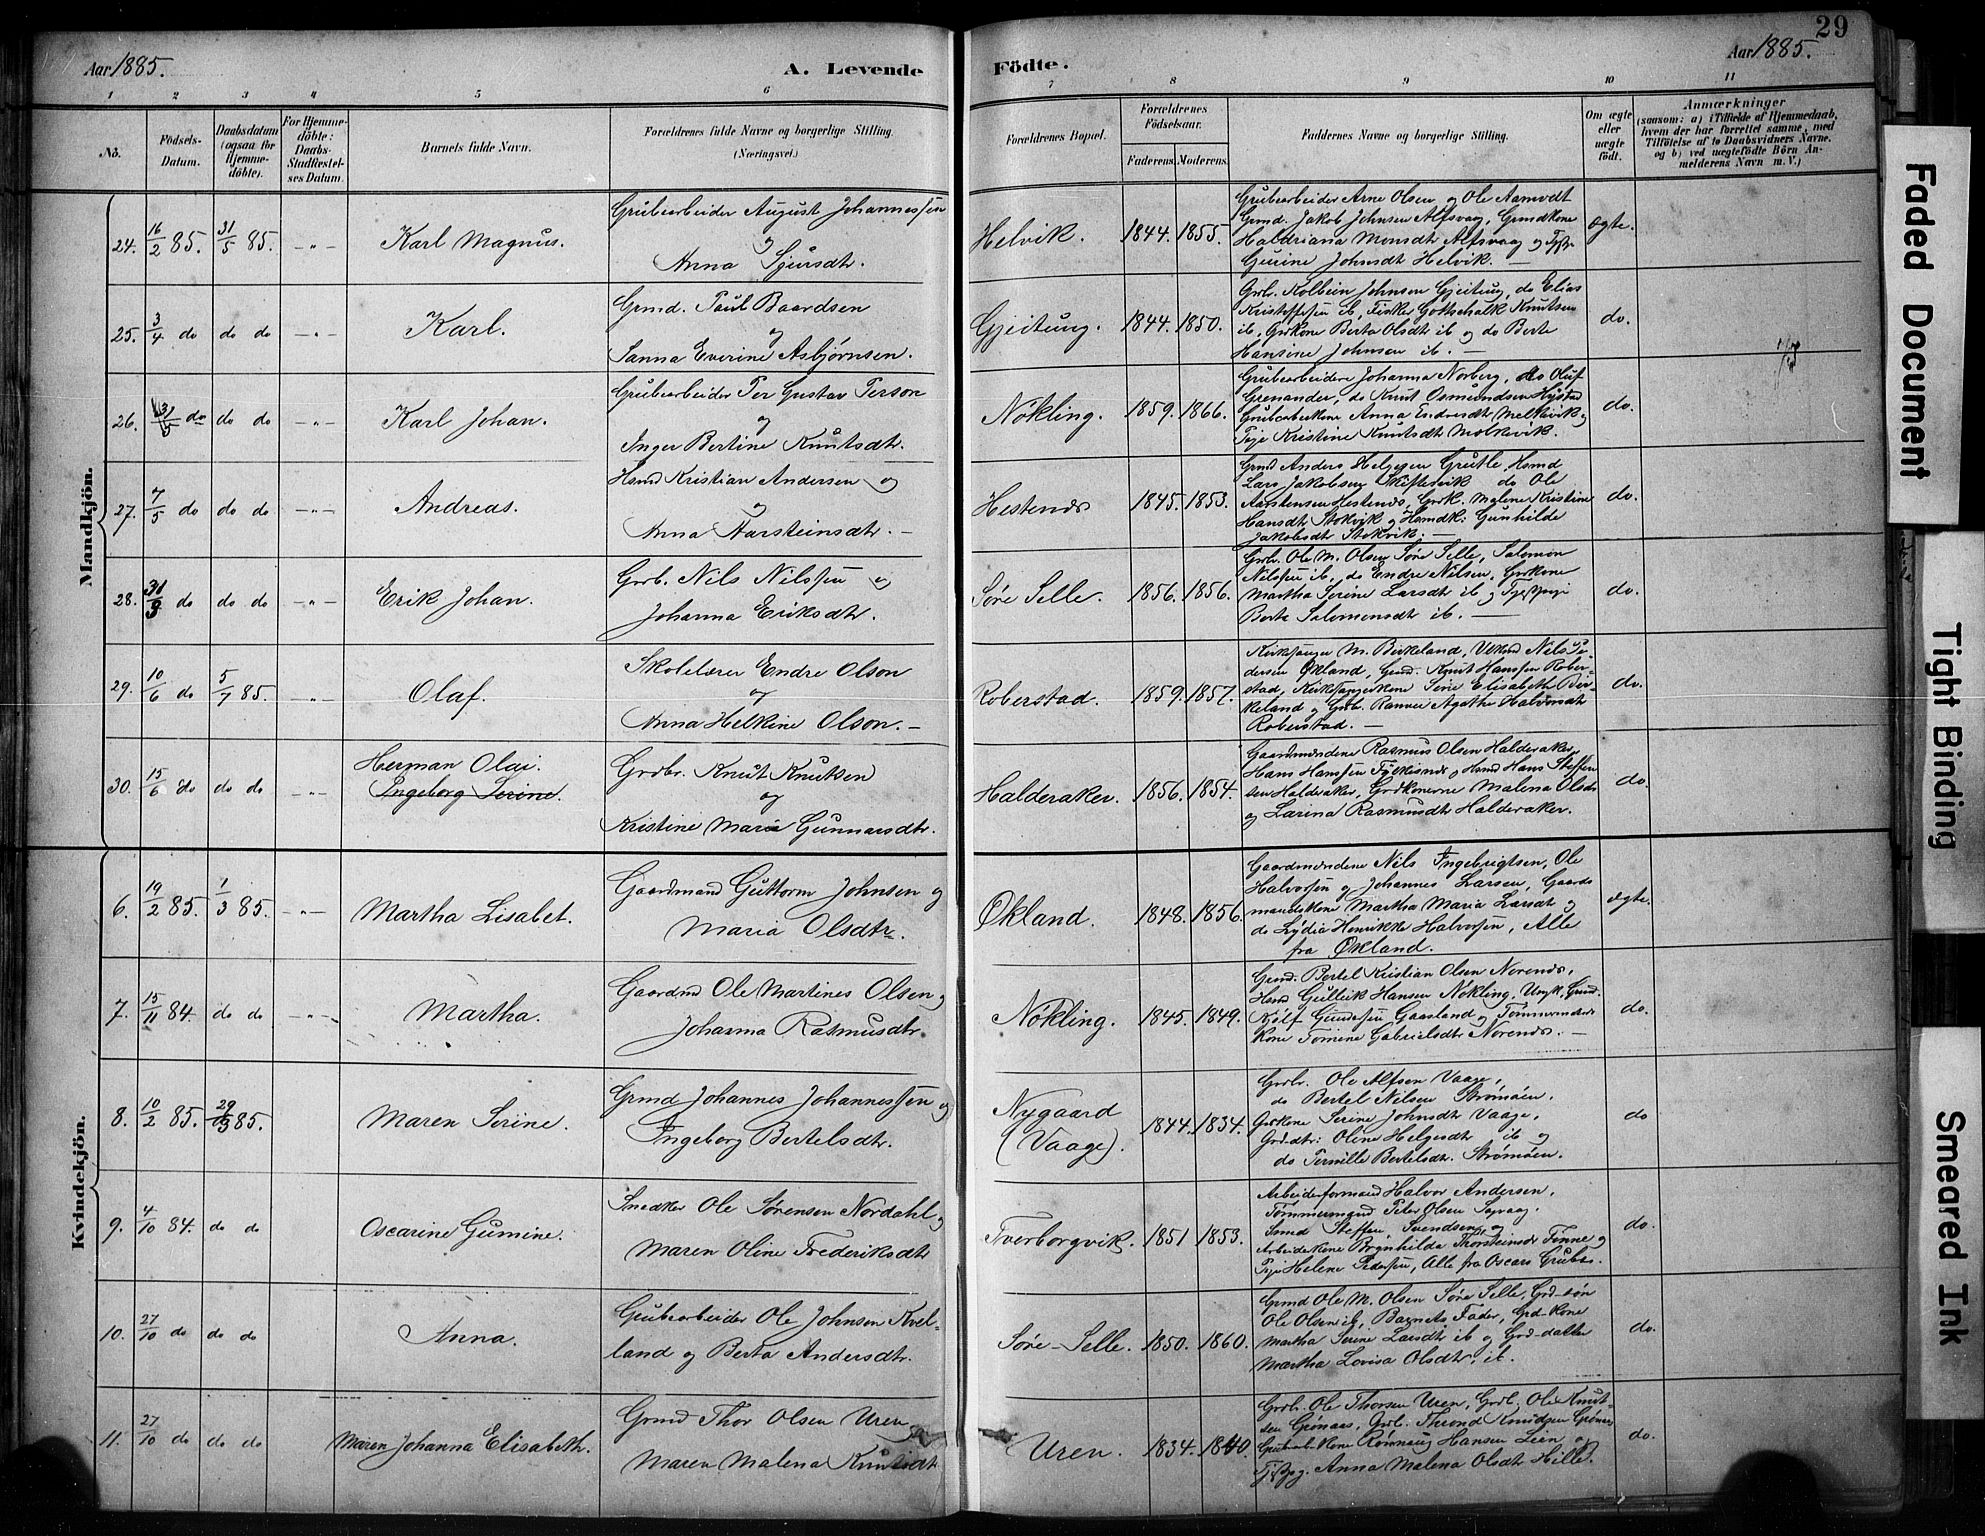 29
Aar 1885.
A. Levende
Födte.
Aar 1885.
1 2 3 4 5 6 7 8 9 10 11
No.
Födsels-Datum.
Daabsdatum (ogsaa for Hjemmedöbte).
For Hjemmedöbte: Daabs-Stadfestelses Datum.
Barnets fulde Navn.
Forældrenes fulde Navne og borgerlige Stilling.
(Næringsvei.)
Forældrenes Bopæl.
Forældrenes Födselsaar.
Faderens. Moderens.
Faddernes Navne og borgerlige Stilling.
Om ægte eller uægte födt.
Anmærkninger
(saasom: a) i Tilfælde af Hjemmedaab,
hvem der har forrettet samme, med
Tilföielse af to Daabsvidners Navne,
og b) ved uægtefödte Börn Anmelderens Navn m. V.)
Mandkjön.
24. 16/2 85. 31/5 85. -"- Karl Magnus. Grubearbeider August Johannessen
og
Anna Sjursdtr.
Helvik. 1844. 1855.
Grubearbeider Arne Olsen og Ole Aamodt
Grmd. Jakob Johnsen Alfsvaag, Grmdkone
Haldriana Monsdtr Alfsvaag og
Gurine Johnsdt Helvik. —
ægte.
25. 3/4 do do do -"- Karl. Grmd. Paul Baardsen
og
Sanna Everine Asbjørnsen.
Gjeitung. 1844. 1850.
Grbr. Kolbein Johnsen Gjeitung, do Elias
Kristoffersen ib, Fisker Gottschalk Knutsen
ib, Grkone Berta Olsdt ib og do Berte
Hansine Johnsen ib. —
do.
26. do do do -"- Karl Johan. Grubearbeider Per Gustav Person
og
Inger Bertine Knutsdtr.
Nökling. 1859. 1866.
Grubearbeidere Johanna Norberg, do Oluf
Grenander, do Knut Osmundsen Hystad
Anna Endresdt Mælkevik og
Pige Kristine Knutsdt Molkevik.
do.
27. 7/5 do do do -"- Andreas. Hsmd Kristian Andersen og
Anna Aarsteinsdtr. —
Hestenæs 1845. 1853.
Grmd Anders Helgesen Grutle, Hsmd
Lars Jakobsen Skiftesvik do Ole
Aarstensen Hestenæs, Grdk. Malene Kristine
Hansdt Stokvik og Hsmdk: Gunhilde
Jakobsdt Stokvik. —
do.
28. 31/3 do do do -"- Erik Johan. Grbr. Nils Nilssen og
Johanna Eriksdtr.
Søre Selle. 1856. 1856.
Grbr. Ole M. Olsen Søre Selle, Salomon
Nilssen ib, do Endre Nilsen, Grkone
Martha Serine Larsdt ib og
Berta Salomonsdt ib. —
do.
29. 10/6 do 5/7 85. -"- Olaf. Skolelærer Endre Olson
og
Anna Helkine Olson. —
Roberstad. 1859. 1857.
Kirkesanger M. Birkeland, Nils Pedersen
Økland, Grmd. Knut Hanssen Roberstad,
Kirkesangerkone Sine Elisabeth Birkeland
og Grdbr. Ranvei Agathe Halvorsdt
Roberstad. —
do.
30. 15/6 do do do -"- Herman Olai.
Ingeborg Serine.
Grdbr. Knut Knutsen
og
Kristine Maria Gunnarsdtr.
Halderaker. 1856. 1854.
Gaardmændene Rasmus Olsen Halderaker,
Hans Hanssen Fylkesnæs, Hsmd Hans Steffensen
Halderaker, Grdkonerne Malena Olsdt
og Larina Rasmusdt Halderaker.
do.
Kvindekjön.
6. 19/2 85. 1/3 85. -"- Martha Lisabet. Gaardmand Guttorm Johnsen og
Maria Olsdtr.
Økland. 1848. 1856.
Gaardmændene Nils Ingebrigtsen, Ole
Halvorsen og Johannes Larsen, Gaardmandskone
Martha Maria Larsdt og
do Lydia Henrikke Halvorsen, Alle
fra Økland.
ægte.
7. 15/11 84. do do -"- Martha. Gaardmd Ole Martines Olsen og
Johanna Rasmusdtr.
Nökling. 1845. 1849.
Grmd. Bertel Kristian Olsen Norenæs,
Hsmd Gullik Hansen Nökling, Ungk. Grmd.
Kjölf Gundersen Gaasland og Tömmermands
Kone Tomine Gabrielsdtr Norenæs. —
do.
8. 10/2 85. 29/3 85. Maren Serine. Grmd Johannes Johannessen og
Ingeborg Bertelsdtr.
Nygaard
(Vaage). 1844. 1834.
Grdbr. Ole Alfsen Vaage,
do Bertel Nilsen Strømøen.
Grkone Serine Johnsdt Vaage,
Grd-dtr: Oline Helgesdt ib og
do Pernille Bertelsdt. Strømøen.
do
9. 4/10 84. do do Oscarine Gumine. Snedker Ole Sörensen Nordahl og
Maren Oline Frederiksdtr
Tverborgvik. 1851 1853.
Arbeiderformand Halvor Andersen,
Tömmermand Peter Olsen
Smed Steffen Svendsen og
Arbeidskone Brynhilda Thorsteinsdt Finne og
Pige Helene Pedersen, Alle fra Oscars Grube.
do.
10. 27/10 do do do Anna. Grubearbeider Ole Johnsen Kvelland
og Berta Andersdtr.
Søre-Selle. 1850. 1860.
Grmd Ole M. Olsen Søre Selle, Grd-sön
Ole Olsen ib, Barnets Fader, Grd-kone
Martha Serine Larsdt ib og Grd-datter
Martha Lovisa Olsdt, ib.
do.
11. 27/10 do do do Maren Johanna Elisabeth. Grmd Thor Olsen Uren
Maren Malena Knutsdt
Uren. 1834. 1840.
Grdbr. Ole Thorsen Uren, Grdb. Ole Knutsen
Grönaas, Grdb. Thrond Knudsen Grönaas
Grubearb.kone Rönnaug Hansen Lien og
Anna Malena Olsdt Hille.
do.
Faded Document
Tight Binding
Smeared Ink